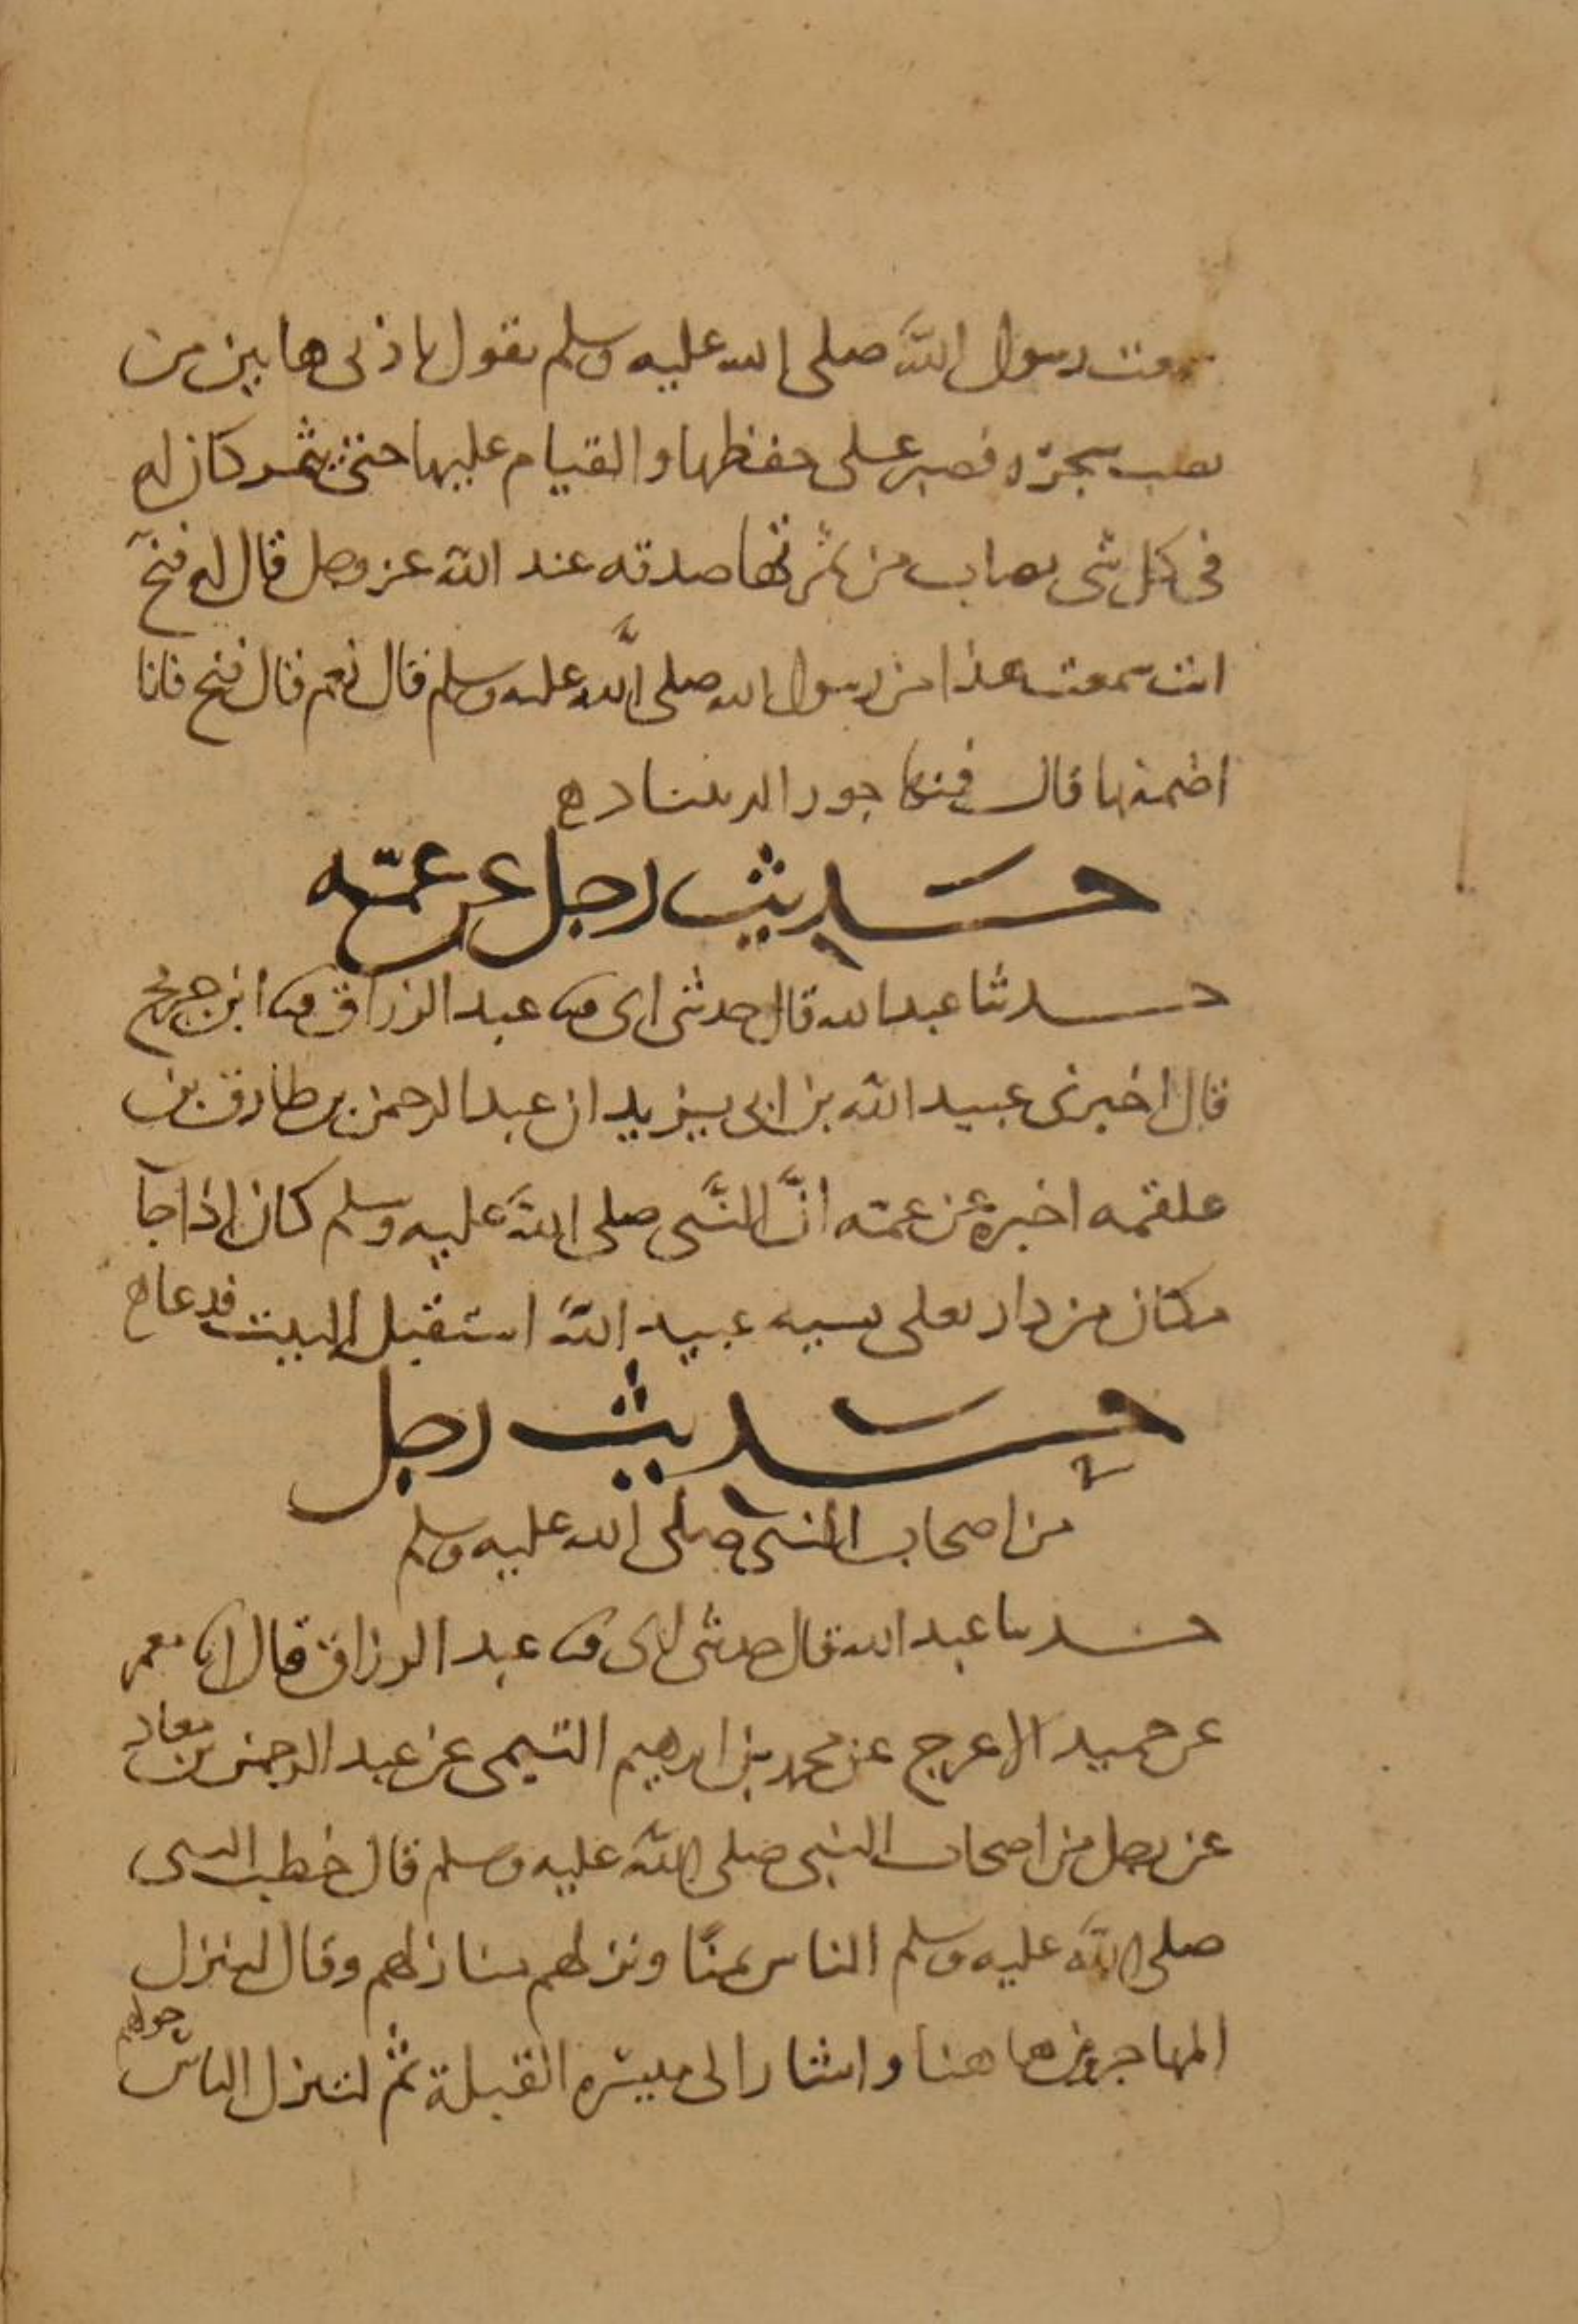 سمعت رسول الله صلى الله عليه وسلم يقول باذنى هاتين من
نصب شجرة فصبر على حفظها والقيام عليها حتى تثمر كان له
فى كل شى يصاب من ثمرتها صدقه عند الله عز وجل قال له فنج
انت سمعت هذا من رسول الله صلى الله عليه وسلم قال نعم قال فنج فانا
اضمنها قال فمنها جوز الدينباد ه
حديث رجل عن عمته
حدثنا عبد الله قال حدثنى ابى ثنا عبد الرزاق ثنا ابن جريج
قال اخبرنى عبيد الله بن ابى يزيد ان عبد الرحمن بن طارق بن
علقمه اخبره عن عمته انَّ النَّبى صلى الله عليه وسلم كان اذا جآ
مكان من دار يعلى نسيه عبيد الله استقبل البيت فدعا ه
حديث رجل
من اصحاب النبى صلى الله عليه وسلم
حدثنا عبد الله قال حدثنى ابى ثنا عبد الرزاق قال انا معمر
عن حميد الاعرج عن محمد بن ابرهيم التيمى عن عبد الرحمن بن معاذ
عن رجل من اصحاب النبى صلى الله عليه وسلم قال خطب النبى
صلى الله عليه وسلم الناس بمنًا ونزلهم منازلهم وقال لينزل
المهاجرون هاهنا واشار الى ميسره القبلة ثم لينزل الناس حولهم